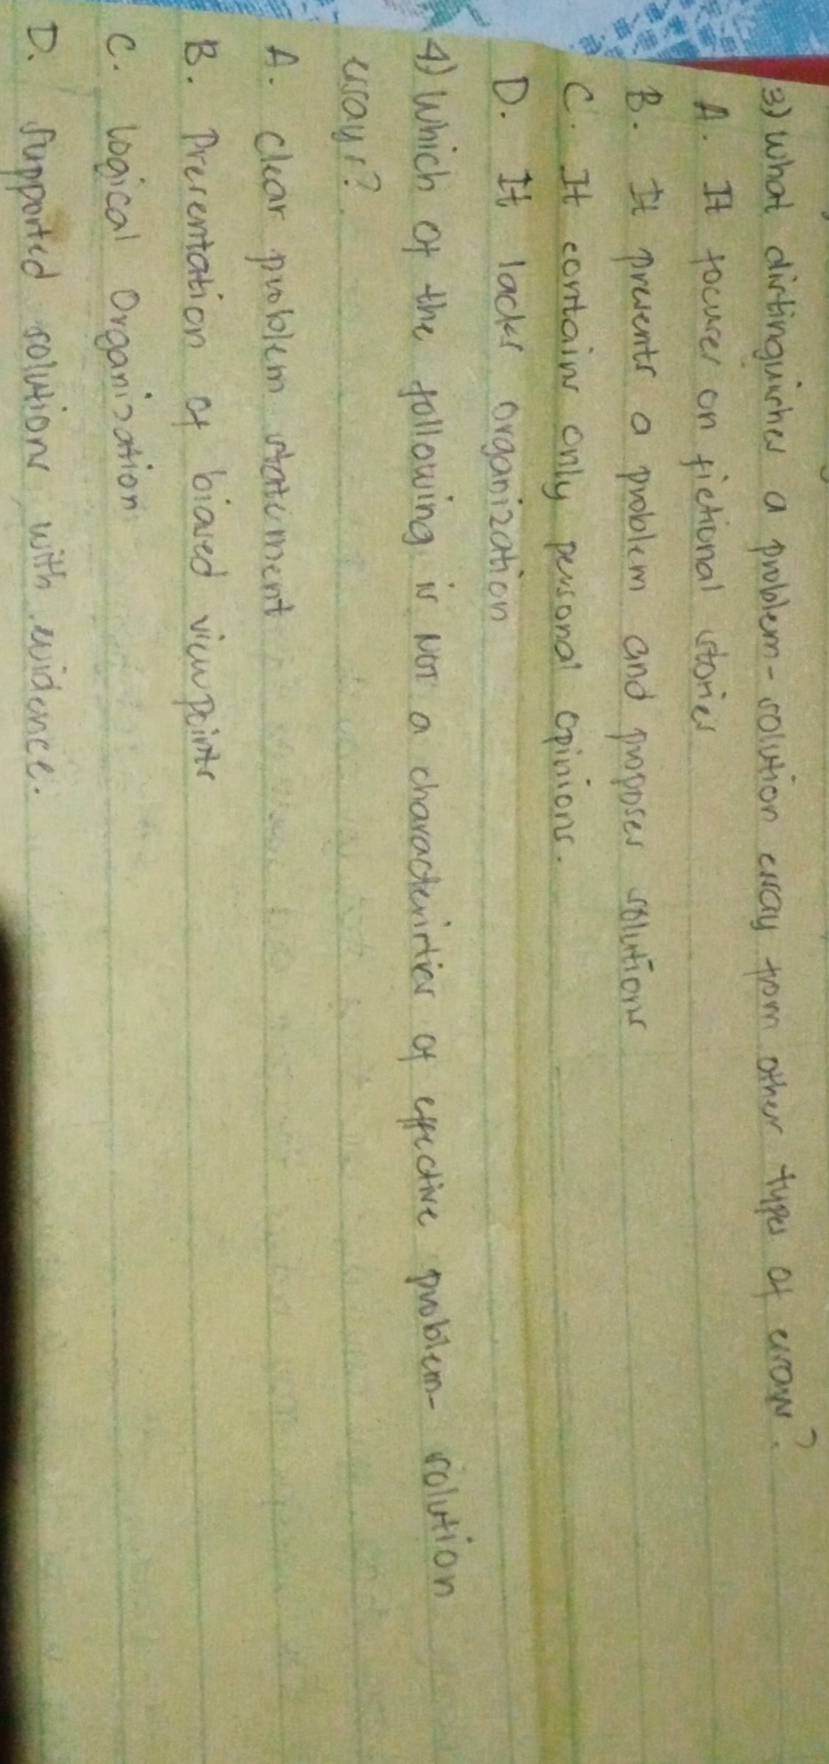 3) What distinguishes a problem-solution essay fom other types of essays?
A. It focuses on fictional stories
B. It presents a problem and proposes solutions
C. It contains only personal opinions.
D. It lacks organization
4) Which of the following is NOT a characteristics of effective problem-solution
essays?
A. Clear problem statement
B. Presentation of biased viewpoints
C. Logical Organization
D. Supported solutions with evidence.